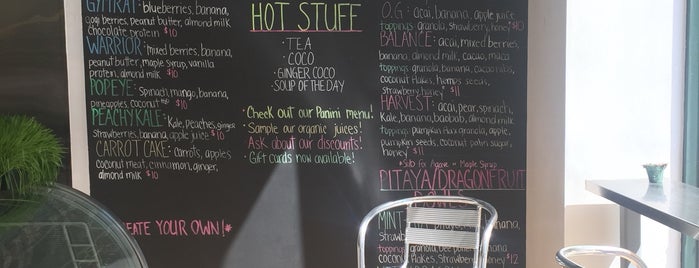 GYMRAT: blueberries, banana,
goji berries, peanut butter, almond milk
chocolate protein $10
WARRIOR: mixed berries, banana,
peanut butter, maple syrup, vanilla
protein, almond milk $10
POPEYE: Spinach, mango, banana,
pineapples, coconut milk $10
PEACHY KALE: Kale, peaches, ginger
strawberries, banana, apple juice $10
CARROT CAKE: carrots, apples
coconut meat, cinnamon, ginger,
almond milk $10
EATE YOUR OWN!*
HOT STUFF
· TEA
· COCO
· GINGER COCO
· SOUP OF THE DAY
· Check out our Panini menu!
· Sample our organic juices!
· Ask about our discounts!
· Gift cards now available!
O.G: acai, banana, apple juice
toppings: granola, strawberry, honey $10
BALANCE: acai, mixed berries,
banana, almond milk, cacao, maca
toppings: granola, banana, cacao nibs,
coconut flakes, hemp seeds,
strawberry, honey $11
HARVEST: acai, pear, spinach,
Kale, banana, baobab, almond milk
toppings: pumpkin flax granola, apple,
pumpkin seeds, coconut palm sugar,
honey $11
*Sub for Agave or Maple Syrup
PITAYA/DRAGONFRUIT
BOWLS
MINT: banana,
strawberry
toppings: granola, bee pollen, banana
coconut flakes, Strawberry, honey $12